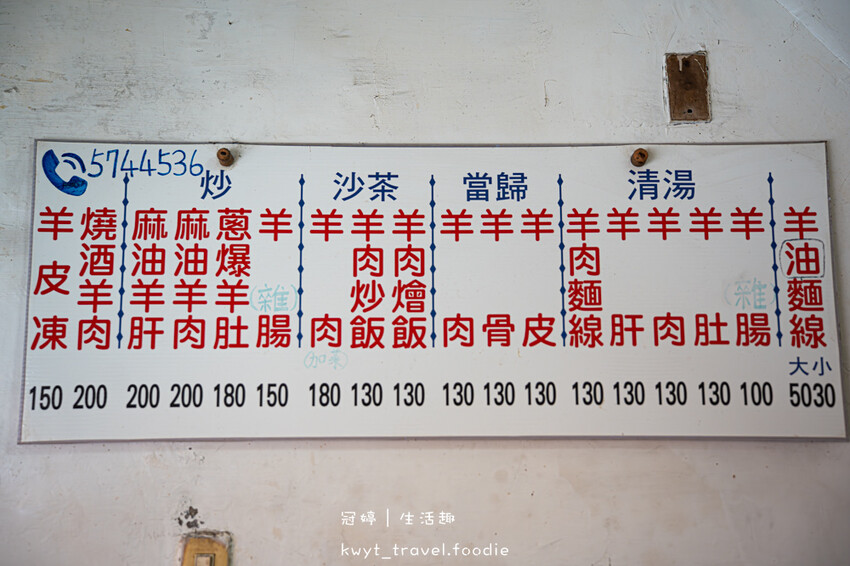 5744536
炒
沙茶
當歸
清湯
羊皮凍
燒酒羊肉
麻油羊肝
麻油羊肉
蔥爆羊肚
羊(雜)腸
羊肉
(加菜)
羊肉炒飯
羊肉燴飯
羊肉
羊骨
羊皮
羊肉麵線
羊肝
羊肉
羊肚
羊(雜)腸
羊油麵線
大小
150 200 200 200 180 150 180 130 130 130 130 130 130 130 130 130 100 5030
冠婷|生活趣
kwyt_travel.foodie